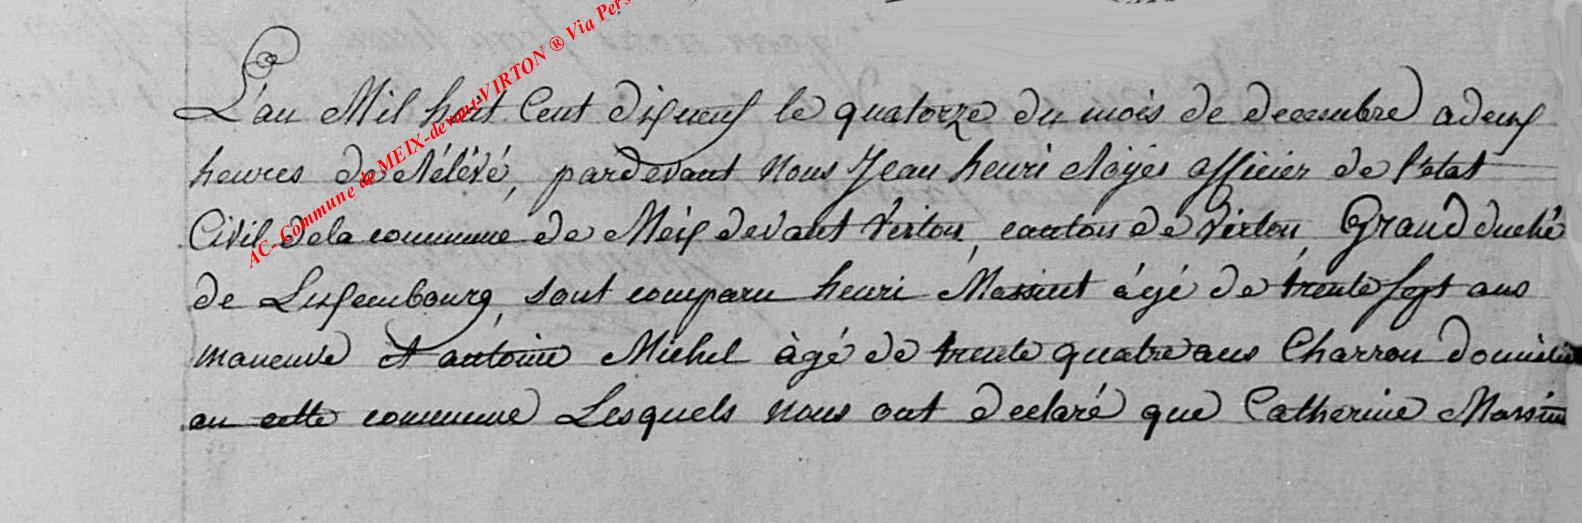 L'an Mil huit Cent disneuf le quatorze du mois de decembre a deux
heures de rélévé, pardevant Nous Jean henri officier de l'etat
Civil dela commune de Meix devant Virton, canton de Virton, Grand duché
de Luxembourg, sont comparu henri Massint ágé de trente sept ans
maneuve et antoine Michel àgé de trente quatre ans Charron domicilié
au cette commune Lesquels nous ont declaré que Catherine Massin
AC- Commune de MEIX-devant-VIRTON ® Via Pers